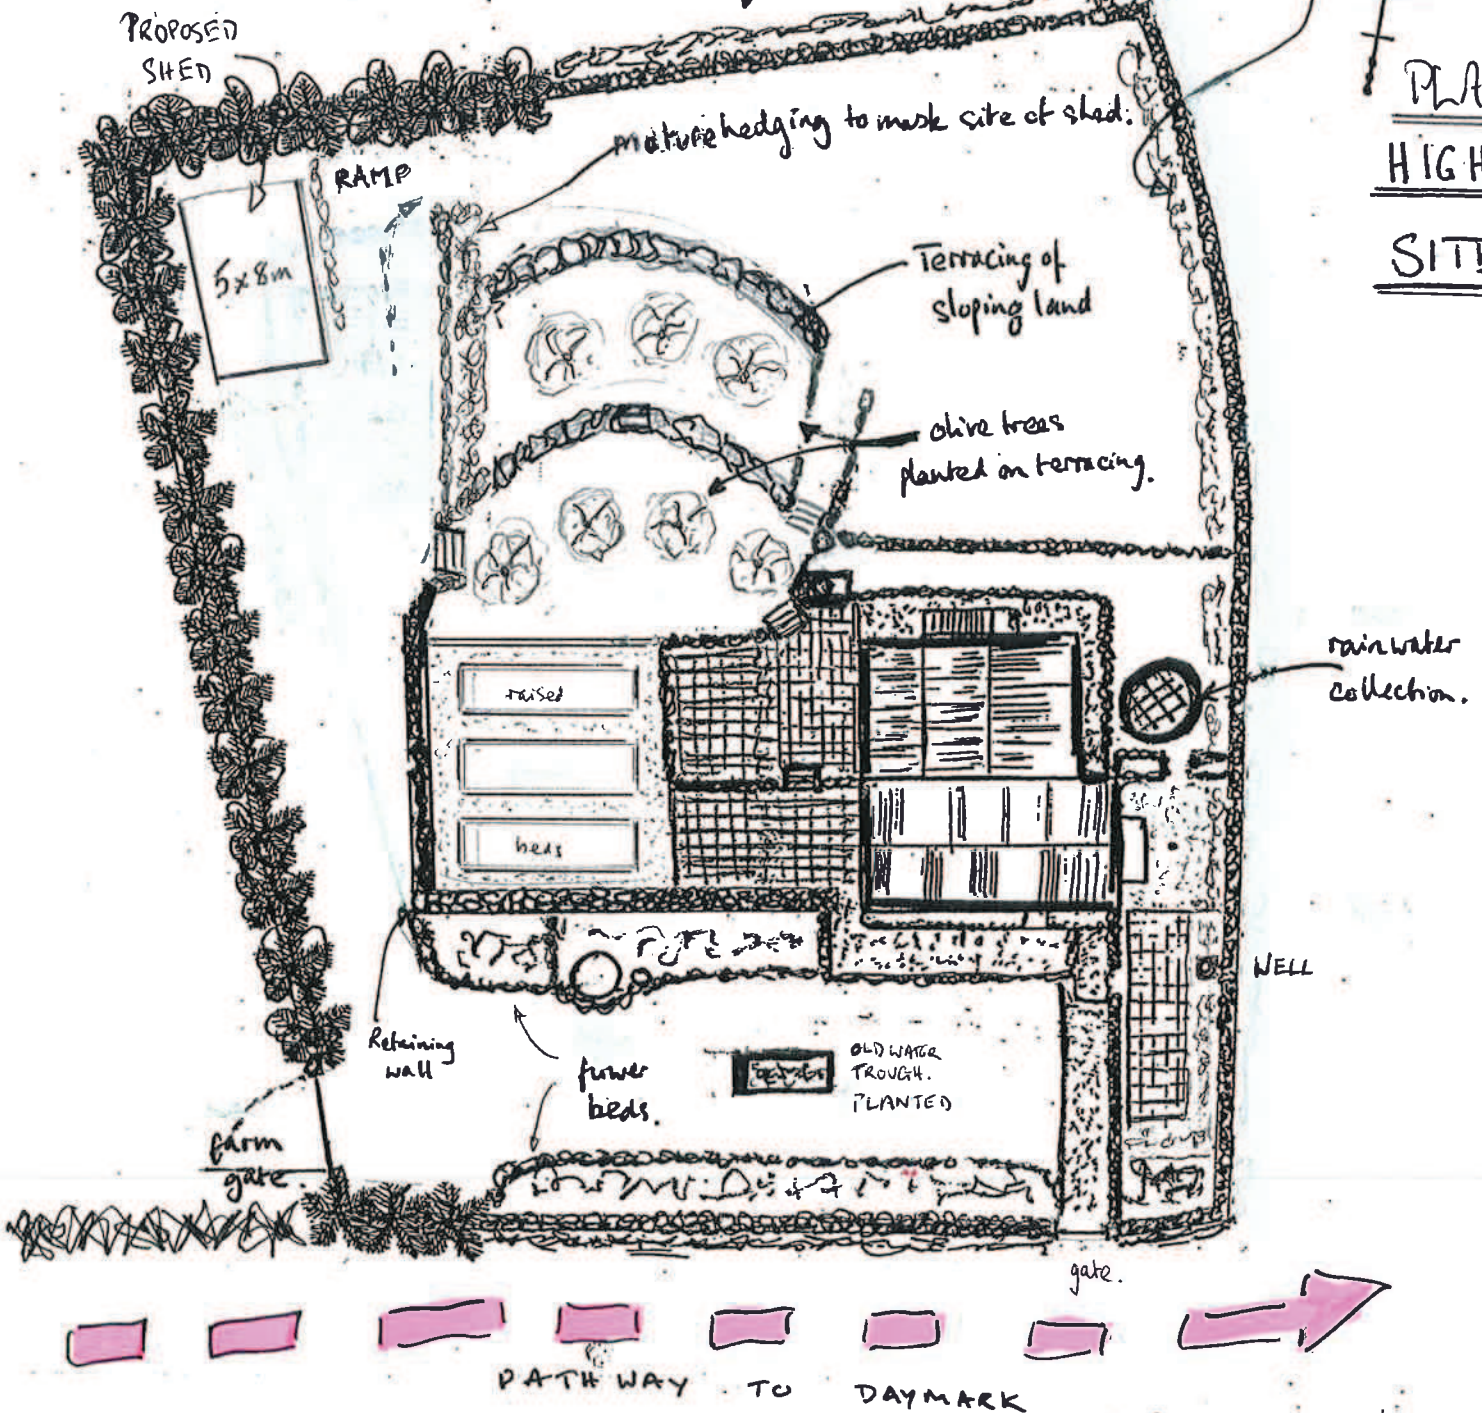 PROPOSED
SHED
PLA
HIGH
SIT
mature hedging to mask site of shed.
RAMP
5x8m
Terracing of
sloping land
olive trees
planted on terracing.
rainwater
collection.
raised
beds
WELL
Retaining
wall
flower
beds.
OLD WATER
TROUGH.
PLANTED
farm
gate.
gate.
PATHWAY TO DAYMARK